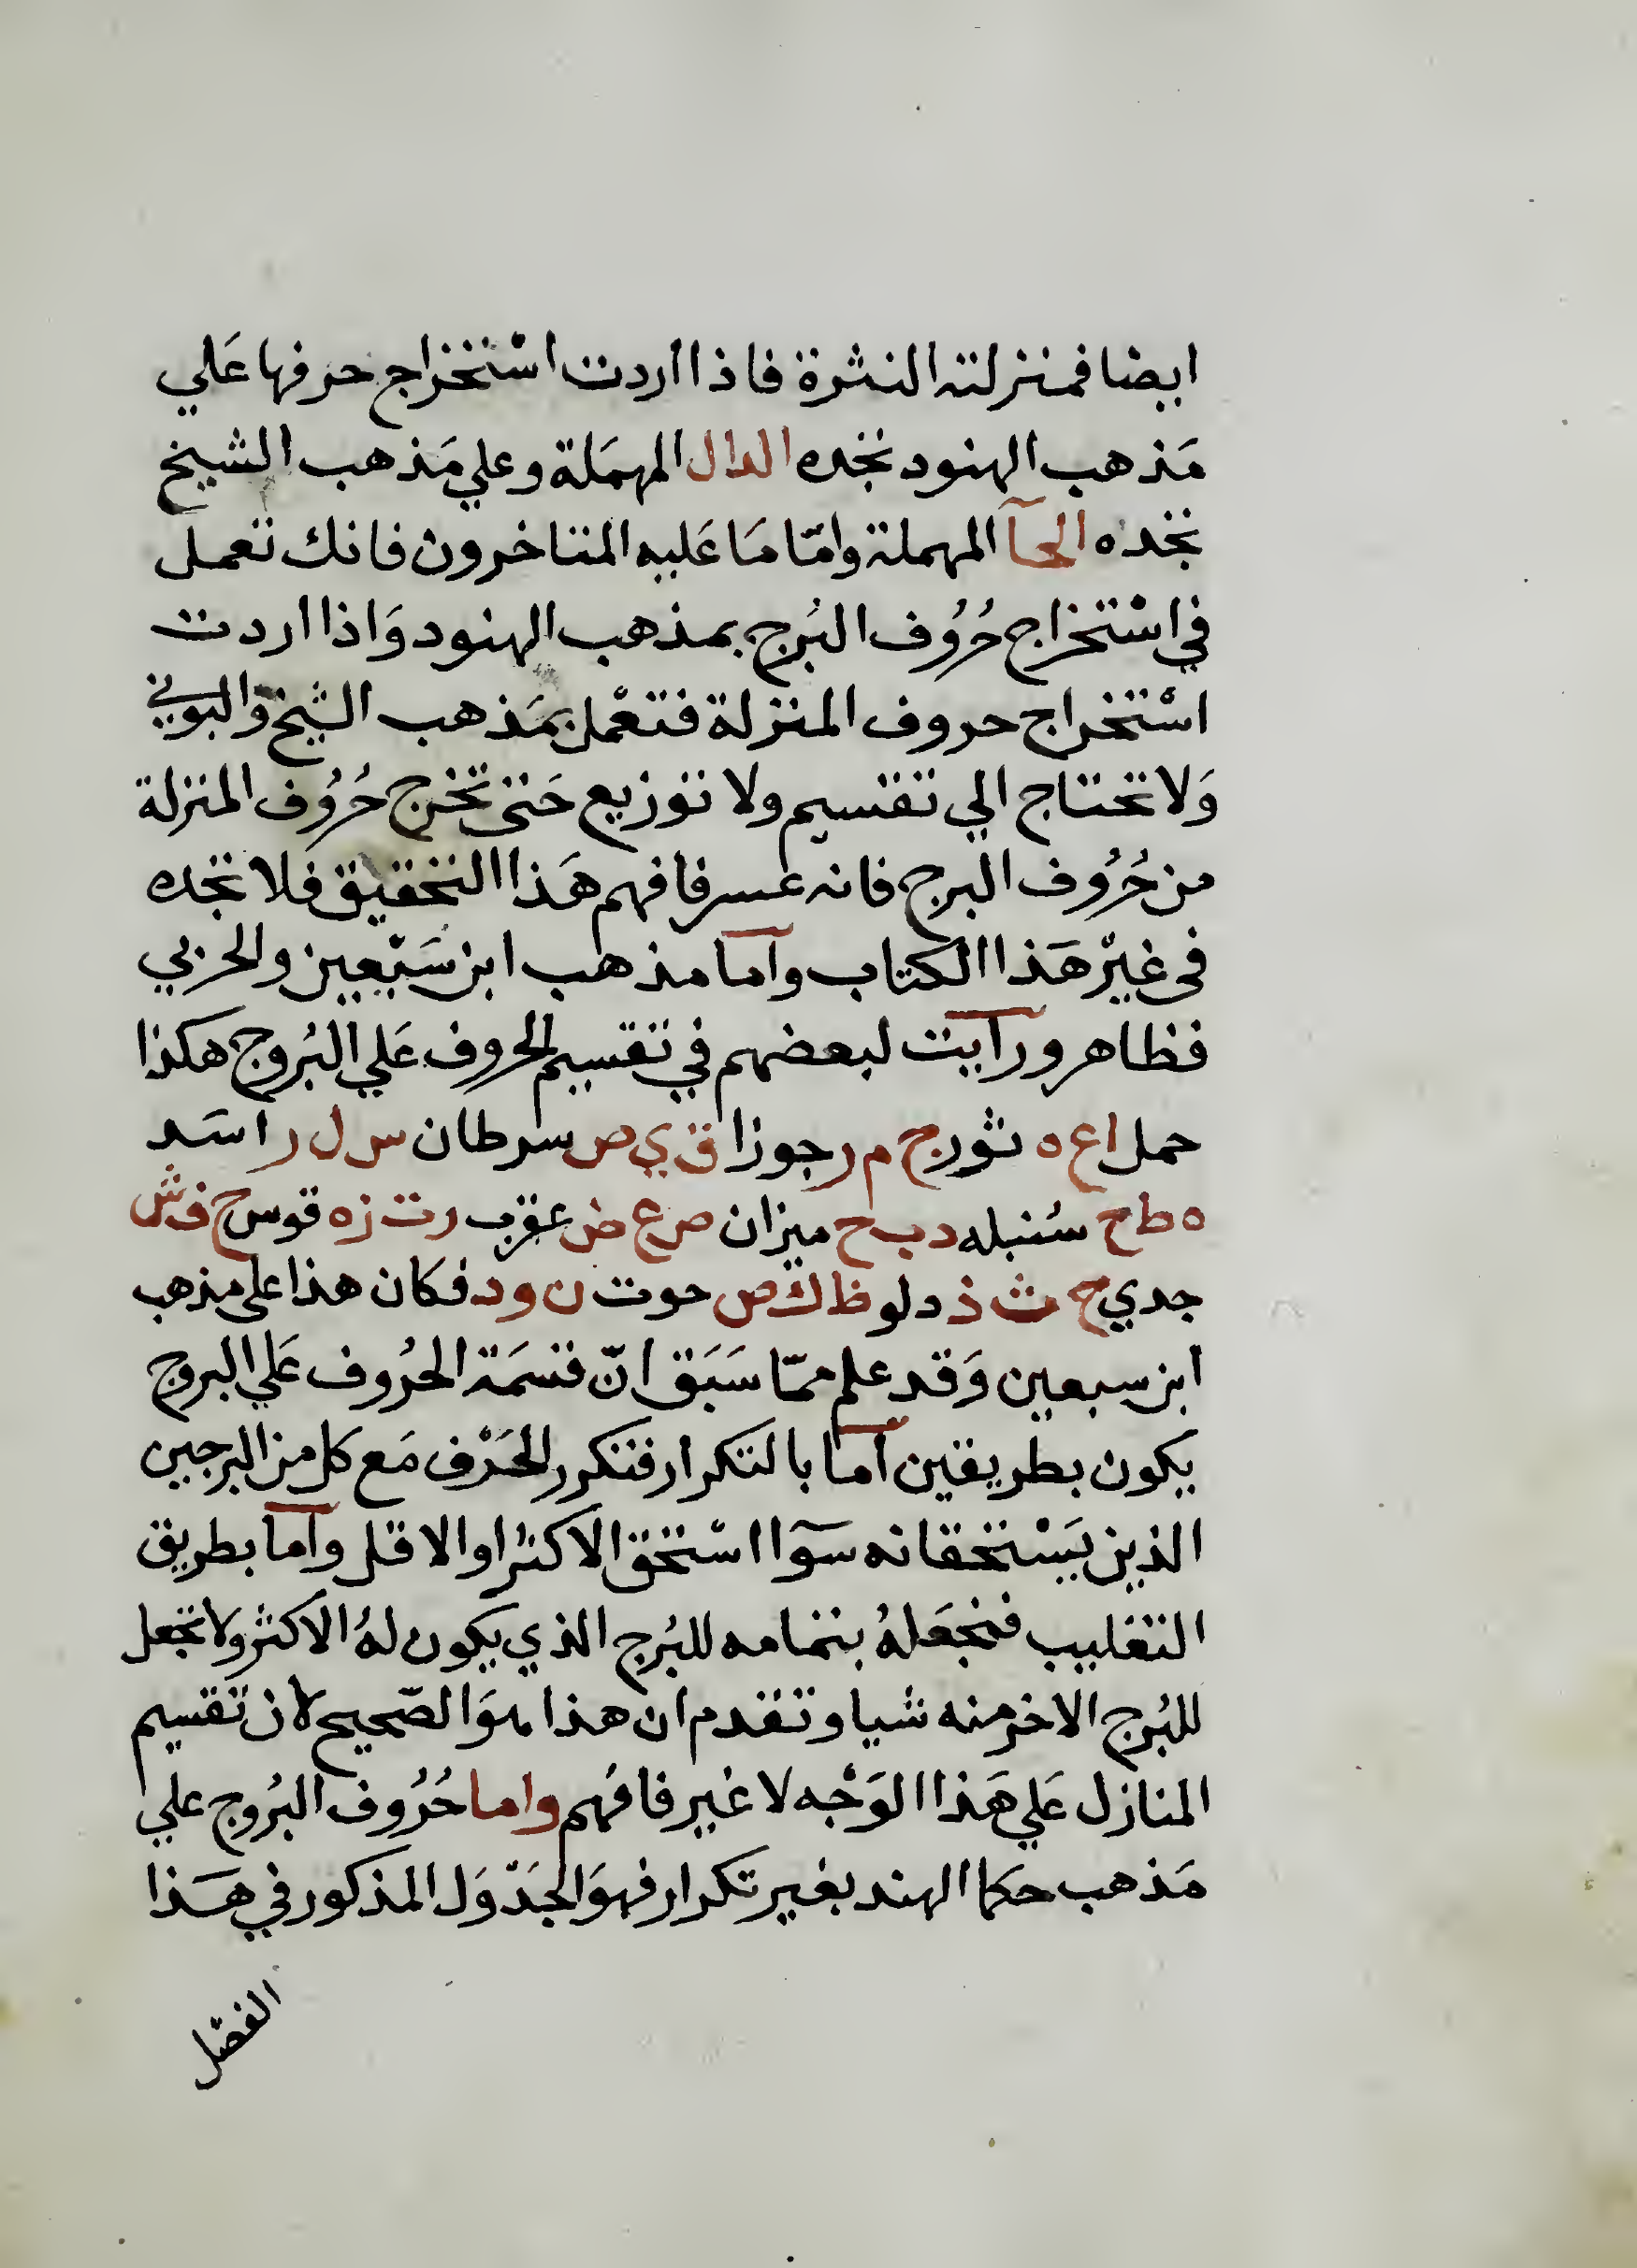 ايضا فمنزلته النثرة فاذا اردت اسْتخراج حرفها عَلي
مَذهب الهنود تجده الدال المهمَلة وعلي مَذهب الشيخ
تجده الحآ المهملة وامّا مَا عَليه المتاخرون فانك تعمل
في اسْتخراج حُرُوف البُرج بمذهب الهنود وَاذا اردت
اسْتخراج حروف المنزلة فتعْمل بمَذهب الشيخ والبوني
وَلا تحتاج الي تقسيم ولا توزيع حَتي تخرج حُرُوف المنزلة
من حُرُوف البرج فانه عسر فافهم هَذا التحقيق فلا تجده
في غيرْ هَذا الكتاب وآما مذهب ابن سَبْعين والحربي
فظاهر ورايت لبعضهم في تقسيم الحروف عَلي البُروج هكذا
حمل ا ع ه ثور ج م ر جوزا ق ي ص سرطان س ل ر اسَد
ه ط ح سُنبله د ب ح ميزان ص ع ض عقرب ر ت ز ه قوس ج ف ش
جدي ح ث ذ دلو ظ ا ك ص حوت ن و د فكان هذا علي مذهب
ابن سبعين وَقد علم ممّا سَبَق انّ قسمَة الحُروف عَلي البروج
يكون بطريقين آما بالتكرار فتكرر الحَرْف مَع كل من البرجين
الذين يَسْتحقانه سوآ اسْتحق الاكثر او الاقل وآما بطريق
التغليب فتجعَلهُ بتمامه للبُرج الذي يكون لهُ الاكثر ولا تجعل
للبُرج الاخر منه شيا وتقدم ان هذا هوَ الصّحيح لان تقسيم
المنازل عَلي هَذا الوَجْه لا غير فافهم واما حُرُوف البُروج علي
مَذهب حكما الهند بغير تكرار فهوَ الجَدْوَل المذكور في هَذا
الفصل